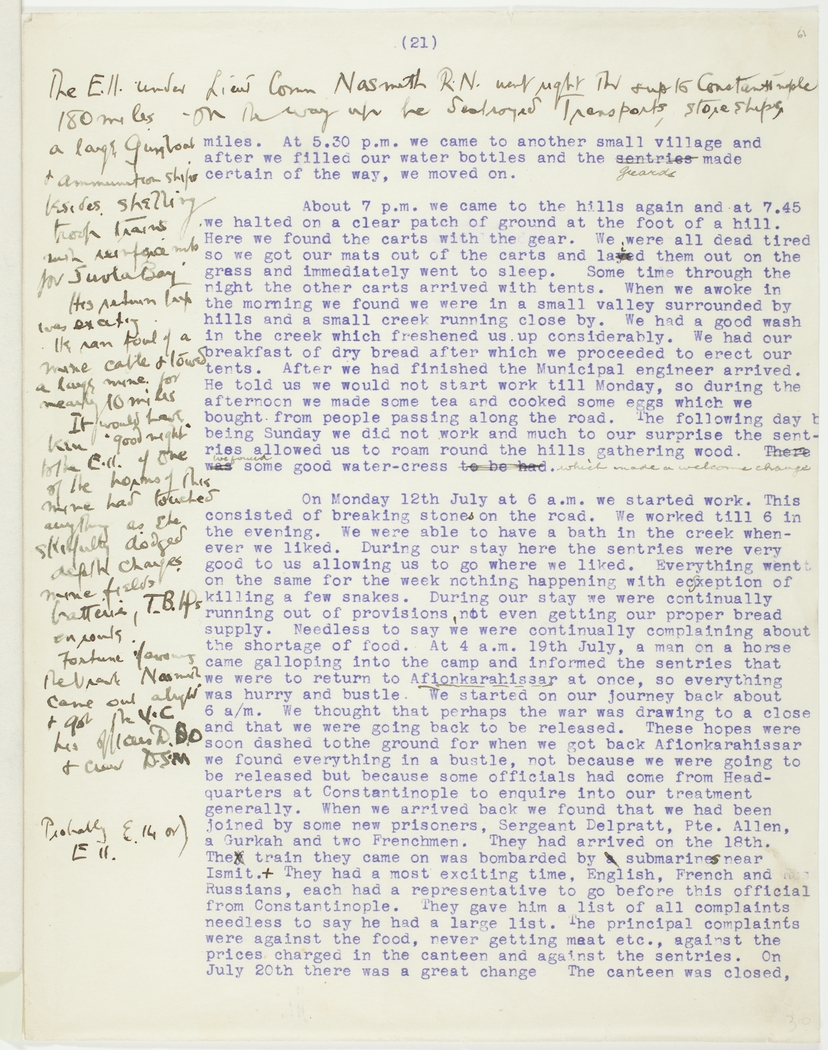 (21)
The E.11. under Lieut Comm Nasmith R.N. went right thro up to Constantinople
180 miles - on the way up he destroyed Transports, store ships,
a large Gunboat
+ ammunition ships
besides shelling
troop trains
with reinforcements
for Suvla Bay
His return trip
was exciting.
He ran foul of a
mine cable & towed
a large mine for
nearly 10 miles
It would have
been "good night"
to the E.11. if one
of the horns of this
mine had touched
anything as she
skilfully dodged
depth charges,
mine fields
batteries, T.B.
en route.
Fortune favours
the brave Nasmith
came out alright
+ got the V.C
his officers D.S.O
+ crew DSM
Probably E.14 or)
E 11.
miles. At 5.30 p.m. we came to another small village and
after we filled our water bottles and the sentries made
guards
certain of the way, we moved on.
About 7 p.m. we came to the hills again and at 7.45
we halted on a clear patch of ground at the foot of a hill.
Here we found the carts with the gear. We were all dead tired
so we got our mats out of the carts and laied them out on the
grass and immediately went to sleep. Some time through the
night the other carts arrived with tents. When we awoke in
the morning we found we were in a small valley surrounded by
hills and a small creek running close by. We had a good wash
in the creek which freshened us up considerably. We had our
breakfast of dry bread after which we proceeded to erect our
tents. After we had finished the Municipal engineer arrived.
He told us we would not start work till Monday, so during the
afternoon we made some tea and cooked some eggs which we
bought from people passing along the road. The following day b
being Sunday we did not work and much to our surprise the sent-
ries allowed us to roam round the hills gathering wood. There
we found
was some good water-cress to be had. which made a welcome change
On Monday 12th July at 6 a.m. we started work. This
consisted of breaking stones on the road. We worked till 6 in
the evening. We were able to have a bath in the creek when-
ever we liked. During our stay here the sentries were very
good to us allowing us to go where we liked. Everything went
on the same for the week nothing happening with exception of
killing a few snakes. During our stay we were continually
running out of provisions, not even getting our proper bread
supply. Needless to say we were continually complaining about
the shortage of food. At 4 a.m. 19th July, a man on a horse
came galloping into the camp and informed the sentries that
we were to return to Afionkarahissar at once, so everything
was hurry and bustle. We started on our journey back about
6 a/m. We thought that perhaps the war was drawing to a close
and that we were going back to be released. These hopes were
soon dashed tothe ground for when we got back Afionkarahissar
we found everything in a bustle, not because we were going to
be released but because some officials had come from Head-
quarters at Constantinople to enquire into our treatment
generally. When we arrived back we found that we had been
joined by some new prisoners, Sergeant Delpratt, Pte. Allen,
a Gurkah and two Frenchmen. They had arrived on the 18th.
The train they came on was bombarded by a submarines near
Ismit.+ They had a most exciting time, English, French and
Russians, each had a representative to go before this official
from Constantinople. They gave him a list of all complaints
needless to say he had a large list. The principal complaints
were against the food, never getting meat etc., against the
prices charged in the canteen and against the sentries. On
July 20th there was a great change The canteen was closed,